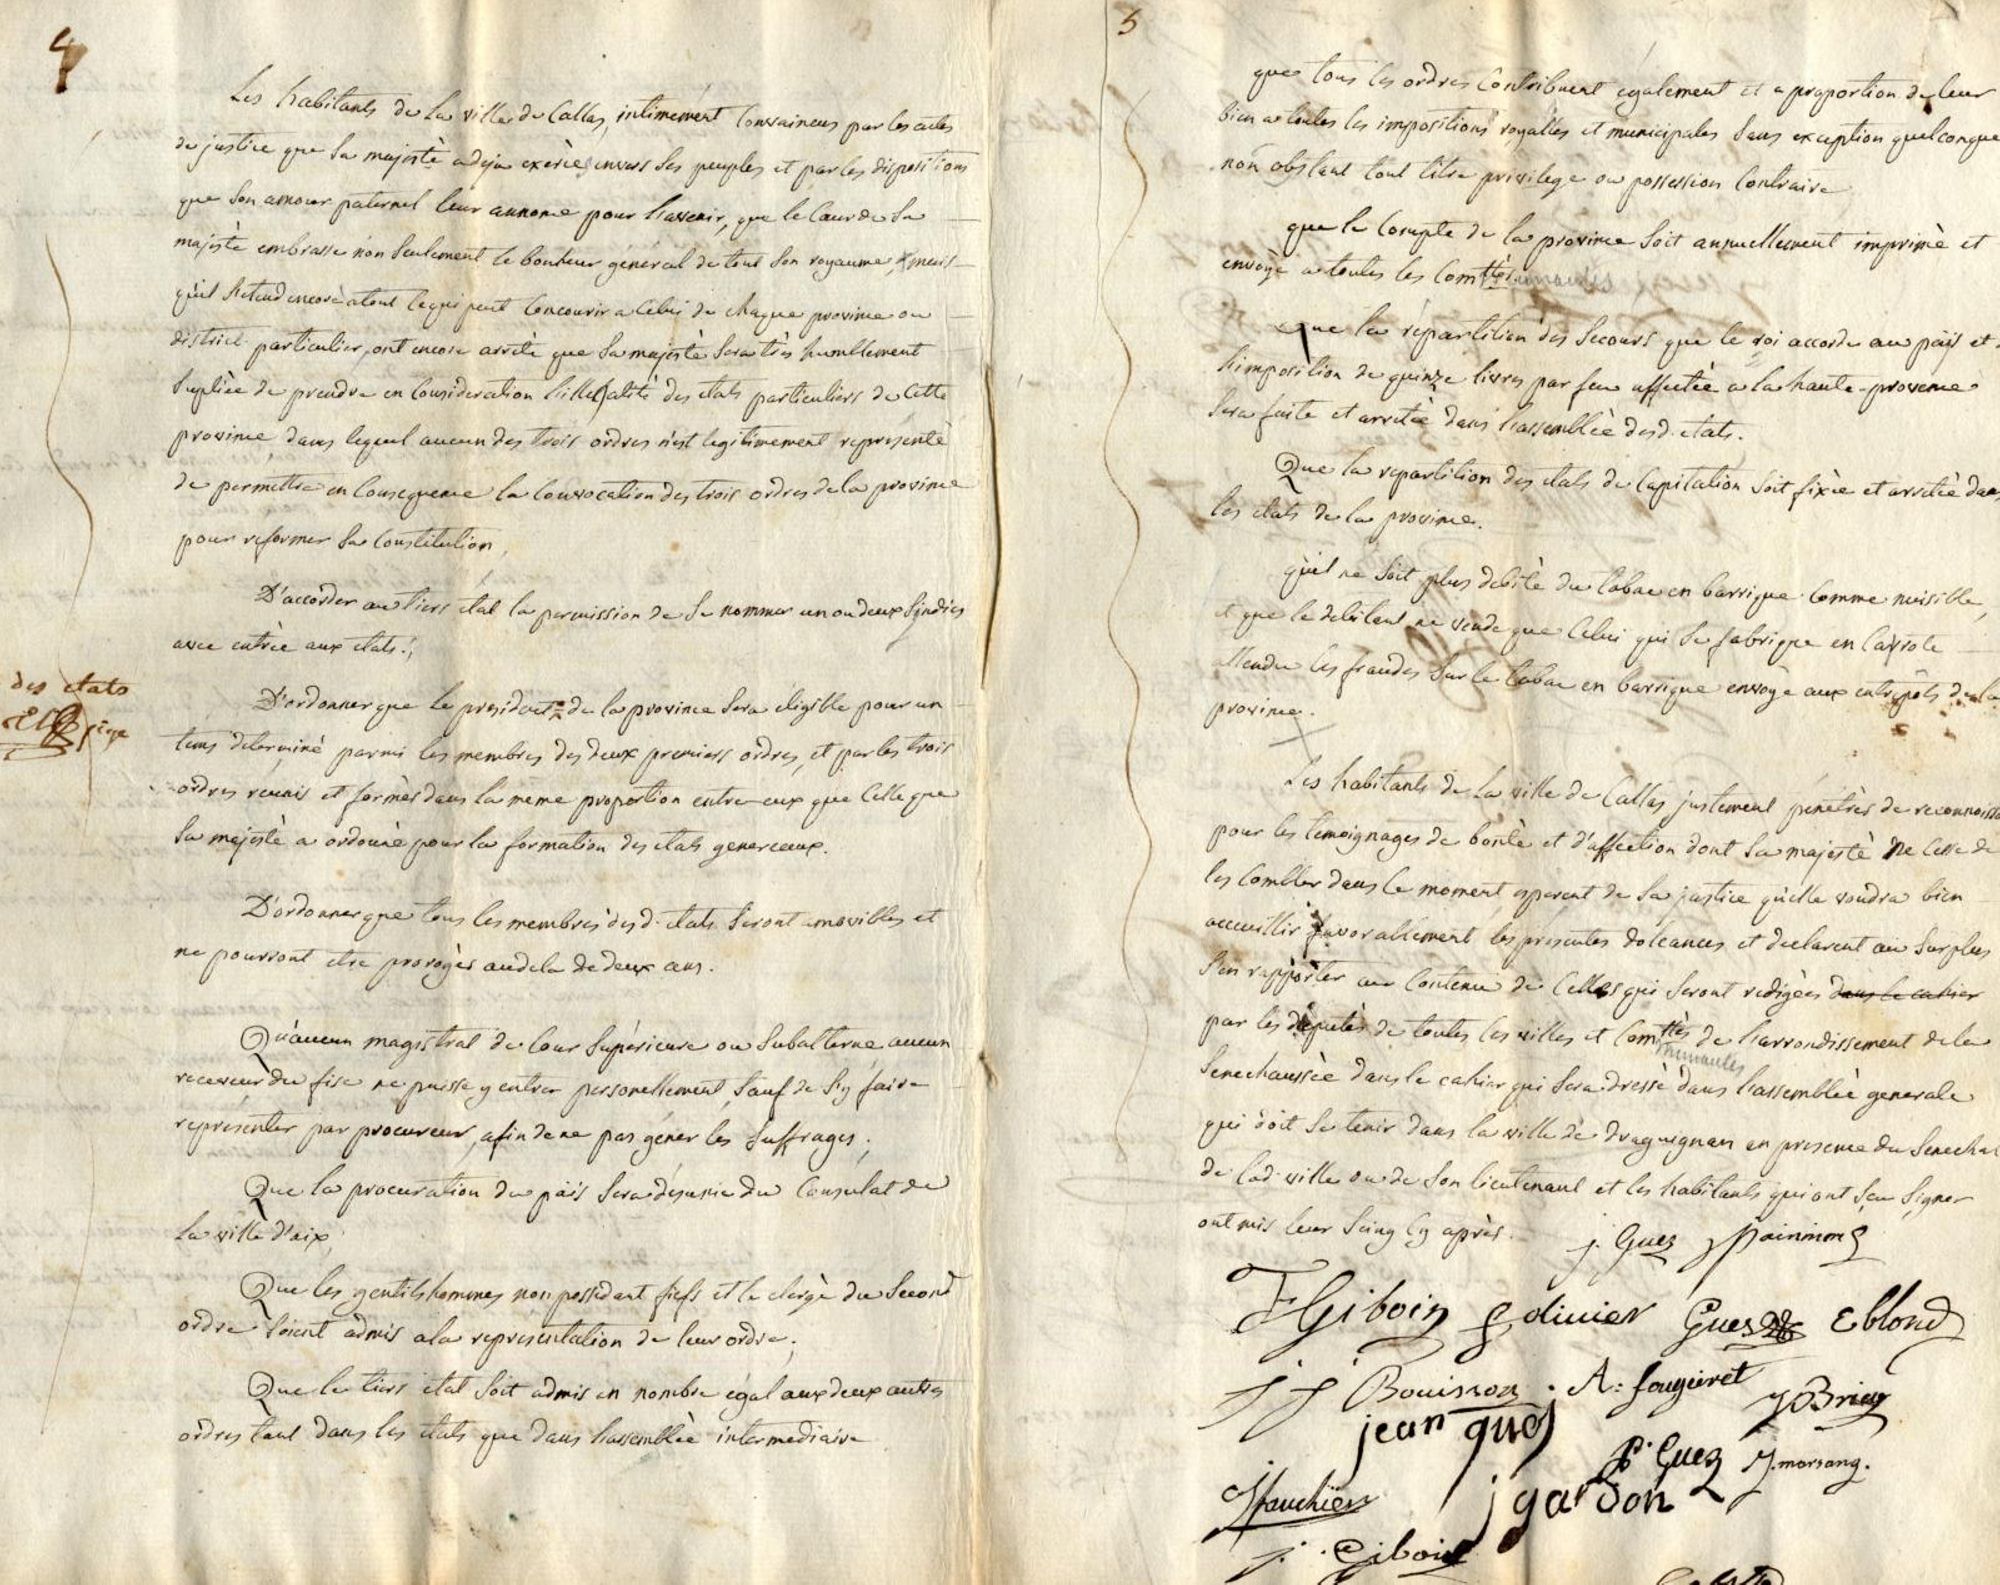 4
Les habitants de la ville de Callas, intimement Convaincus par les actes
de justice que Sa majestè a deja exercés envers Ses peuples et par les dispositions
que Son amour paternel leur annonce pour l'avenir, que le Cœur de Sa
majestè embrasse non Seulement le bonheur général de tout Son royaume, mais
qu'il S'etend encore a tout ce qui peut Concourir a Celui de chaque province ou
district particulier, ont encore arrêtè que Sa majestè Sera très humblement
Supliée de prendre en Consideration l'illegalitè des etats particuliers de Cette
province, dans lequel aucun des trois ordres n'est legitimement représentè
de permettre en Consequence la Convocation des trois ordres de la province
pour reformer Sa Constitution,
D'accorder au tiers etat la permission de Se nommer un ou deux Sindics
avec entrèe aux etats;
des etats
D'ordonner que le president de la province Sera eligible pour un
tems determinè parmi les membres des deux premiers ordres, et par les trois
ordres réunis et formés dans la meme proportion entre eux que Celle que
Sa majestè a ordonnè pour la formation des etats generaux.
D'ordonner que tous les membres desd. etats Seront amovibles et
ne pourront etre prorogés audela de deux ans.
Qu'aucun magistrat de Cour Supérieure ou Subalterne, aucun
receveur du fisc ne puisse y entrer personellement, Sauf de S'y faire
représenter par procureur, afin de ne pas géner les Suffrages;
Que la procuration du païs Sera désunie du Consulat de
la ville d'aix;
Que les gentilshommes non possedant fiefs et le clergè du Second
ordre Soient admis a la representation de leur ordre;
Que le tiers etat Soit admis en nombre égal aux deux autres
ordres tant dans les etats que dans l'assemblèe intermediaire
5
que tous les ordres Contribuent également et a proportion de leur
bien a toutes les impositions royalles et municipales Sans exception quelconque
non obstant tout titre privilege ou possession Contraire
que le Compte de la province Soit annuellement imprimè et
envoyé a toutes les Comttès
Que la répartition des Secours que le roi accorde au païs et
l'imposition de quinze livres par feu affectèe a la haute provence
Sera faite et arretèe dans l'assemblèe desd. etats.
Que la repartition des etats de Capitation Soit fixèe et arretèe dans
les etats de la province.
qu'il ne Soit plus debitè du tabac en barrique Comme nuisible,
et que le debitant ne vende que Celui qui Se fabrique en Carrote
attendu les fraudes Sur le tabac en barrique envoyé aux entrepôts de la
province.
Les habitants de la ville de Callas justement pénétrès de reconnoiss
pour les temoignages de bontè et d'affection dont Sa majestè ne Cesse de
les Combler dans Ce moment, esperent de Sa justice qu'elle voudra bien
accueillir favorablement les présentes doléances et declarent au Surplus
S'en rapporter au Contenu de Celles qui Seront redigées dans le cahier
par les députés de toutes les villes et Comttès de l'arrondissement de la
munautes
Senechaussèe dans le cahier qui Sera dressè dans l'assemblèe generale
qui doit Se tenir dans la ville de draguignan en presence du Senechal
de lad. ville ou de Son lieutenant et les habitants qui ont Seu Signer
ont mis leur Seing Cy après.
j. Guez
F Giboin olivier Gues E blond
J J Bouisson A: fougeiret J Brieu
jean gues
P. Guez J. morsang.
j gardon
j. Giboin